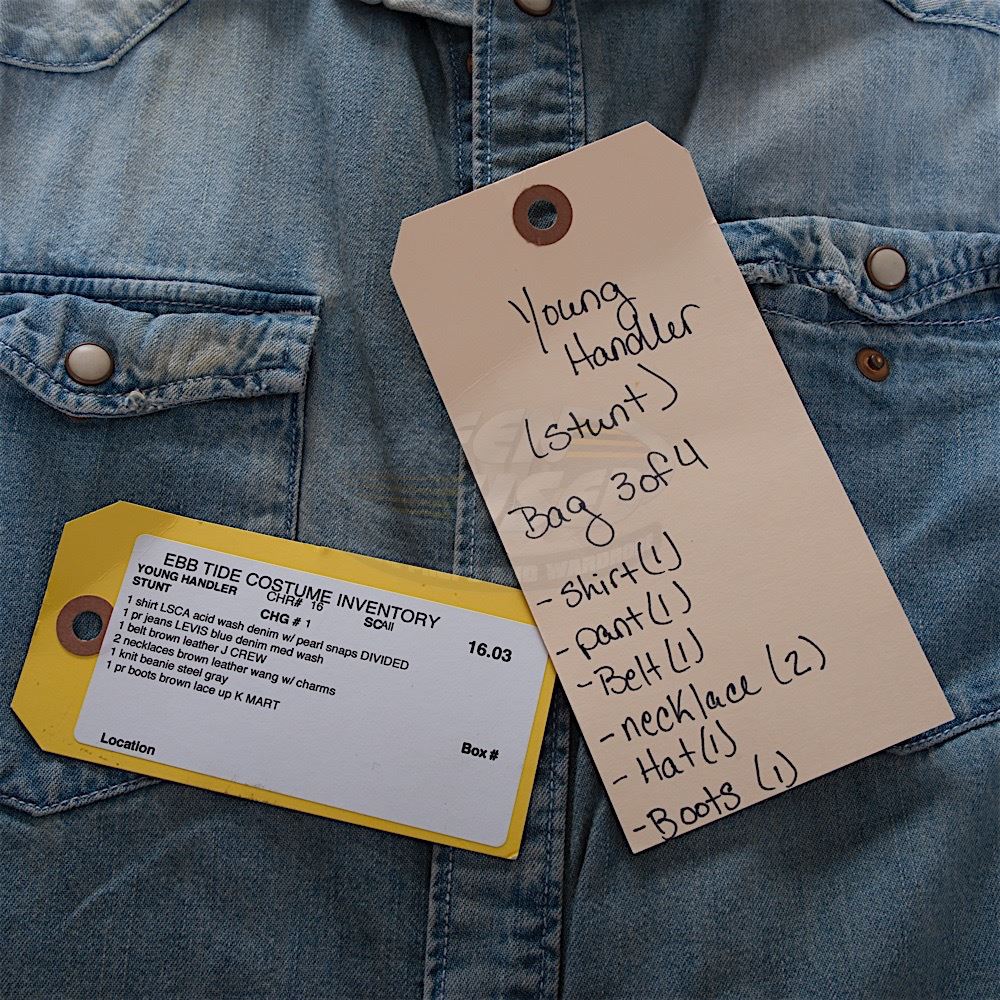 Young
Handler
(stunt)
Bag 3 of 4
- Shirt (1)
- pant (1)
- Belt (1)
- necklace (2)
- Hat (1)
- Boots (1)
EBB TIDE COSTUME INVENTORY
YOUNG HANDLER CHR# 16 16.03
STUNT CHG # 1 SCAll
1 shirt LSCA acid wash denim w/ pearl snaps DIVIDED
1 pr jeans LEVIS blue denim med wash
1 belt brown leather J CREW
2 necklaces brown leather wang w/ charms
1 knit beanie steel gray
1 pr boots brown lace up K MART
Location Box #